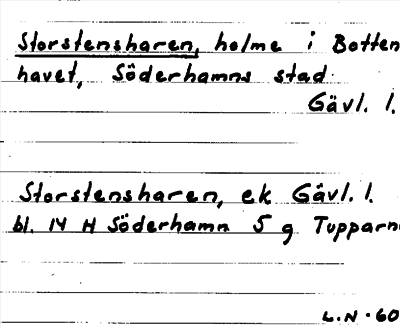 Storstensharen, holme i Botten
havet, Söderhamns stad.
Gävl. l.
Storstensharen, ek Gävl. l.
bl. 14 H Söderhamn 5 g Tupparn
L.N. 60